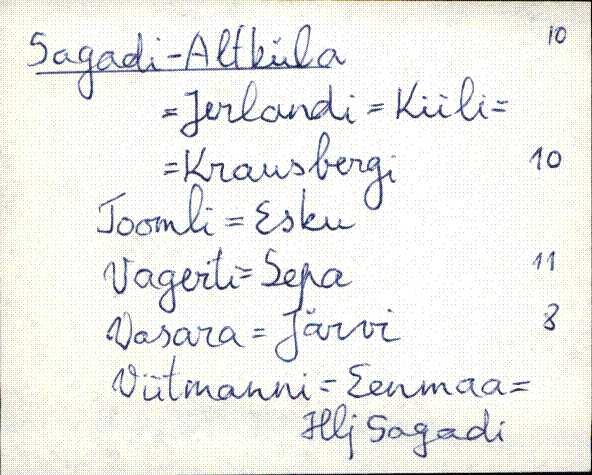 Sagadi-Altküla 10
=Jerlandi = Kiili=
=Krausbergi 10
Toomli = Esku
Vagerti= Sepa 11
Vasara = Järvi 8
Viitmanni = Eenmaa=
Hlj Sagadi